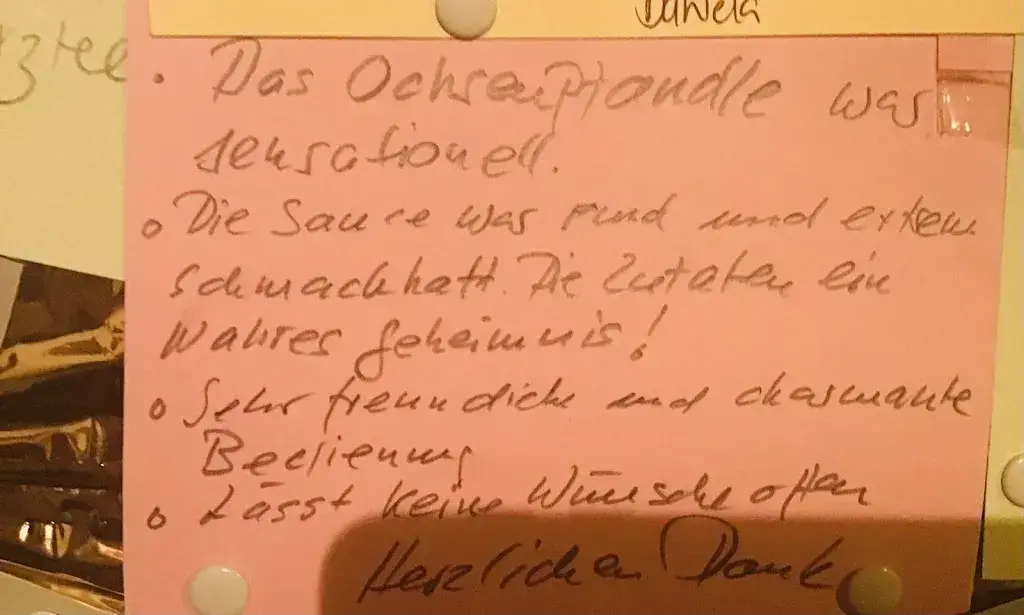 Daniela
• Das Ochsenpfandle war
sensationell.
o Die Sauce war rund und extrem
schmackhaft. Die Zutaten ein
wahres Geheimnis!
o Sehr freundliche und charmante
Bedienung
o Lässt keine Wünsche offen
Herzlichen Dank